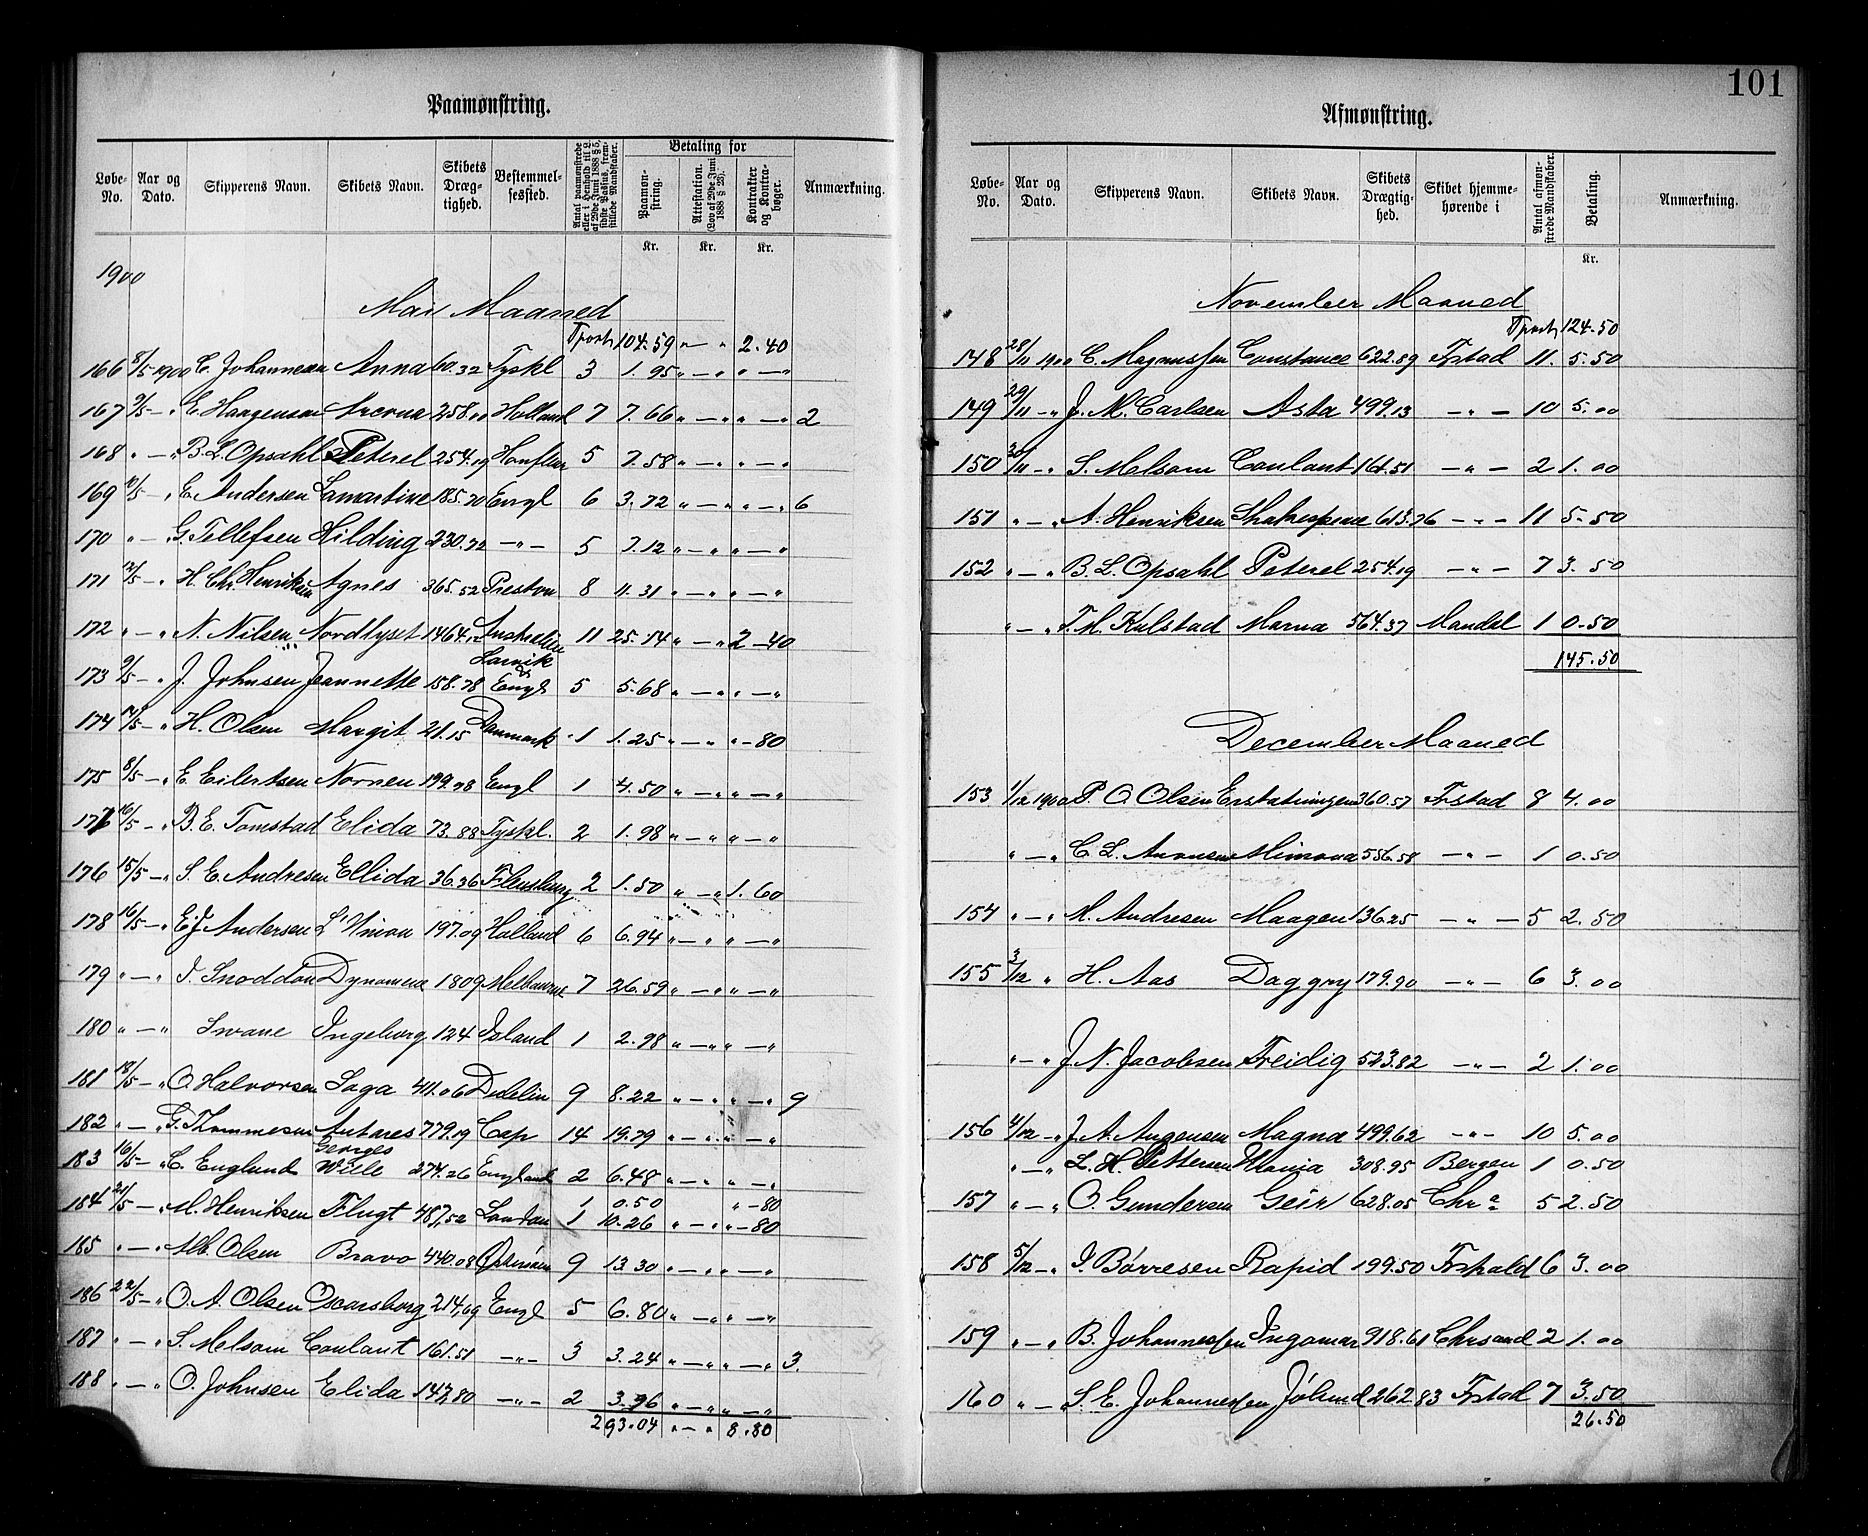 Paamønstring.
Løbe-No. Aar og Dato. Skipperens Navn. Skibets Navn. Skibets Dræg-tighed. Bestemmel-sessted. Antal paamønstrede eller i Henhold til L. af 29de Juni 1888 § 5, sidste Passus, frem-stillede Mandskaber. Betaling for Paamøn-string. Kr. Attestation. (Lov af 29de Juni 1888 § 23). Kr. Kontrakter og Kontra-bøger. Kr. Anmærkning.
1900
Mai Maaned
Tpost, 104.59 " — " 2.40
166 8/5 1900 C. Johannesen Anna 60.32 Tyskl 3 1.95 " — " " — "
167 9/5 — " E. Haagensen 258.00 Holland 7 7.66 " — " " — " 2
168 " — " B. L. Opsahl Peterel 254.19 Honfleur 5 7.58 " — " " — "
169 10/5 " E. Andersen Lamartine 185.70 Engl 6 3.72 " — " " — " 6
170 " — " G. Tellefsen Hilding 230.72 — " — 5 7.12 " — " " — "
171 12/5 — " H. Chr. Henriksen Agnes 365.52 Preston 8 11.31 " — " " — "
172 " — " N. Nilsen Nordlyset 1464.12 Australien 11 25.14 " — " 2 — 40
173 9/5 — " J. Johnsen Jeannette 158.78 Larvik & Engl 5 5.68 " — " " — "
174 14/5 — " H. Olsen Margit 21.15 Danmark 1 1.25 " — " " — 80
175 8/5 — " E. Eilertsen Nornen 199.98 Engl 1 4.50 " — " " — "
176 10/5 — " B. E. Tomstad Elida 73.88 Tyskl. 2 1.98 " — " " — "
176 15/5 — " S. E. Andresen Ellida 36.36 Flensburg 2 1.50 " — " 1.60
178 16/5 — " E. J. Andersen L'Union 197.09 Holland 6 6.94 " — " " — "
179 " — " J. Snoddon Dynomene 1809 Melbourne 7 26.59 " — " " — "
180 " — " Swane Ingeborg 124 Island 1 2.98 " — " " — "
181 18/5 — " O. Halvorsen Saga 411.06 Dublin 9 8.22 " — " " — " 9
182 " — " G. Thommesen Antares 779.19 Cap 14 19.79 " — " " — "
183 16/5 — " C. Englund Georges Wille 274.26 England 2 6.48 " — " " — "
1 0.50 " — 80
184 21/5 — " M. Henriksen Flugt 487.52 London 1 10.26 " — " " — 80
185 " — " Alb. Olsen Bravo 440.08 9 13.30 " — " " — "
186 22/5 — " O. A. Olsen Oscarsborg 214.09 Engl 5 6.80 " — " " — "
187 " — " S. Melsom Coulant 161.51 — " — 3 3.24 " — " " — " 3.
188 " — " O. Johnsen Elida 147.80 — " — 2 3.96 " — " " — "
293.04 " — " 8.80
101
Afmønstring.
Løbe-No. Aar og Dato. Skipperens Navn. Skibets Navn. Skibets Drægtig-hed. Skibet hjemme-hørende i Antal afmøn-strede Mandskaber. Betaling. Kr. Anmærkning.
November Maaned
Tpost, 124.50
148 28/11 1900 C. Magnussen Constance 622.89 Frstad 11. 5.50
149 29/11 — " J. M. Carlsen Asta 499.13 — " — 10 5.00
150 30/11 — " S. Melsom Coulant 161.51 — " — 2 1.00
151 " — " A. Henriksen Shakespeare 613.76 — " — 11 5.50
152 " — " B. L. Opsahl Peterel 254.19 — " — 7 3.50
" — " T. M. Kulstad Marna 564.37 Mandal 1 0.50
145.50
December Maaned
153 1/12 1900 P. O. Olsen Erstatningen 360.57 Frstad 8 4.00
" — " C. L. Aronsen Mimona 556.58 — " — 1 0.50
154 " — " M. Andresen Maagen 136.25 — " — 5 2.50
155 3/12 " H. Aas Daggry 179.90 — " — 6 3.00
" — " J. N. Jacobsen Freidig 523.82 — " — 2 1.00
156 4/12 — " J. A. Augensen Magna 499.62 — " — 10 5.00
" — " L. H. Pettersen 308.95 Bergen 1 0.50
157 " — " O. Gundersen Geir 628.05 Chr a 5 2.50
158 5/12 — " J. Børresen Rapid 199.50 Frhald 6 3.00
159 " — " B. Johannessen Ingomar 918.61 Chrsand 2 1.00
160 " — " S. E. Johannessen Jølund 262.83 Frstad 7 3.50
26.50